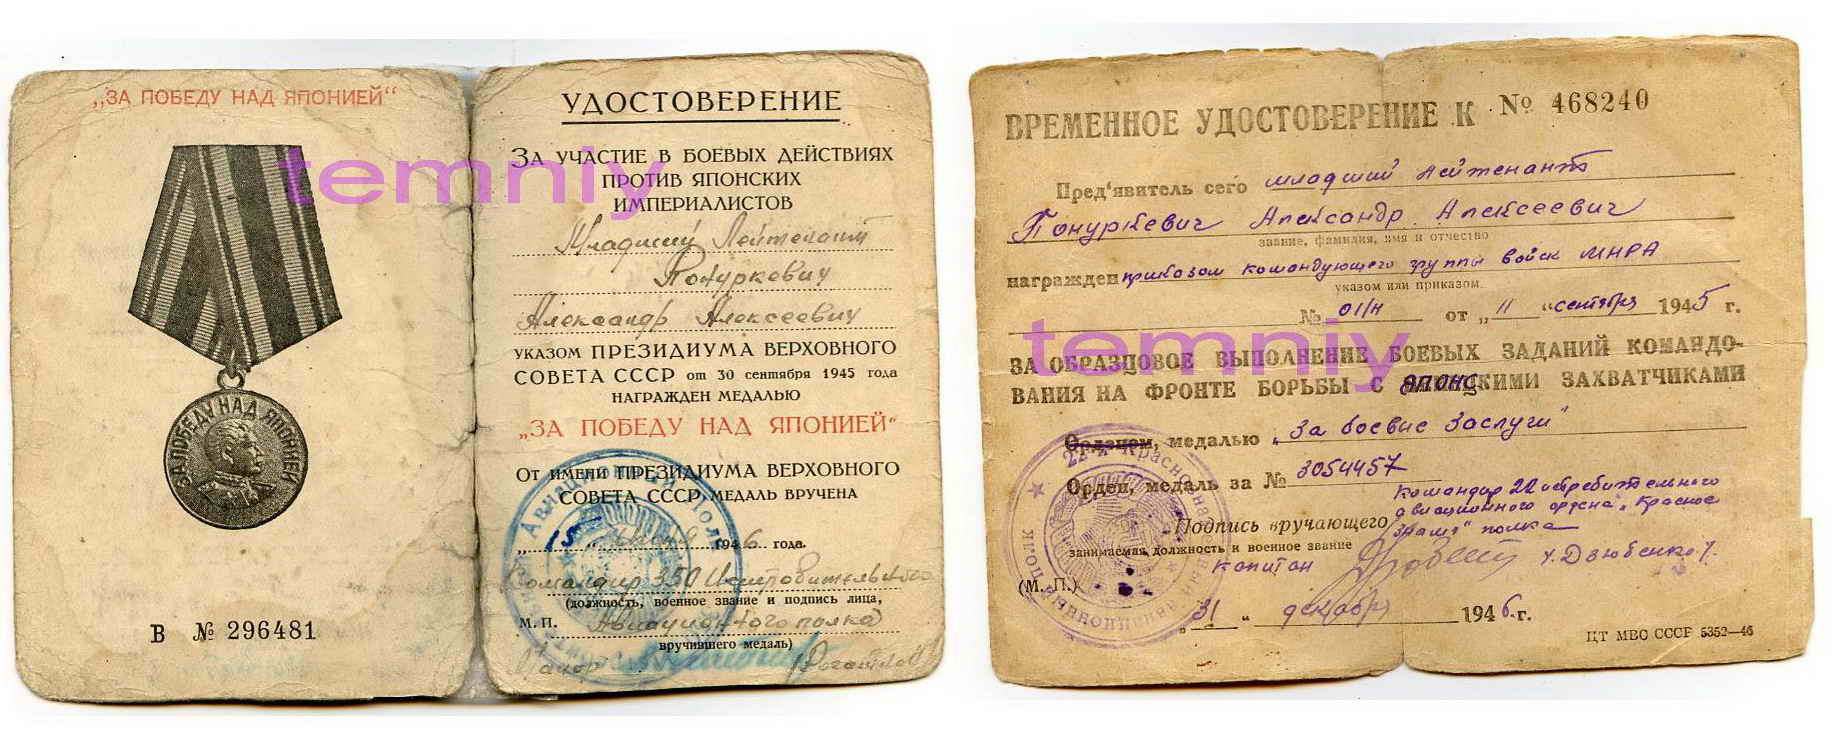 „ЗА ПОБЕДУ НАД ЯПОНИЕЙ“
ЗА ПОБЕДУ НАД ЯПОНИЕЙ
В № 296481
temniy
УДОСТОВЕРЕНИЕ
ЗА УЧАСТИЕ В БОЕВЫХ ДЕЙСТВИЯХ
ПРОТИВ ЯПОНСКИХ
ИМПЕРИАЛИСТОВ
Младший Лейтенант
Понуркевич
Александр Алексеевич
УКАЗОМ ПРЕЗИДИУМА ВЕРХОВНОГО
СОВЕТА СССР от 30 сентября 1945 года
НАГРАЖДЕН МЕДАЛЬЮ
„ЗА ПОБЕДУ НАД ЯПОНИЕЙ“
ОТ ИМЕНИ ПРЕЗИДИУМА ВЕРХОВНОГО
СОВЕТА СССР МЕДАЛЬ ВРУЧЕНА
1946 года.
Командир 350 Истребительного
(должность, военное звание и подпись лица,
М. П. Авиационного полка
вручившего медаль)
Майор
ВРЕМЕННОЕ УДОСТОВЕРЕНИЕ К № 468240
Пред'явитель сего младший лейтенант
Понуркевич Александр Алексеевич
звание, фамилия, имя и отчество
награжден приказом командующего группы войск МНРА
указом или приказом
№ 01/н от „11“ сентября 1945 г.
temniy
ЗА ОБРАЗЦОВОЕ ВЫПОЛНЕНИЕ БОЕВЫХ ЗАДАНИЙ КОМАНДО-
ВАНИЯ НА ФРОНТЕ БОРЬБЫ С ЯПОНСКИМИ ЗАХВАТЧИКАМИ
Орденом, медалью „За боевые заслуги“
Орден, медаль за № 3054457
Командир 22 истребительного
авиационного ордена „Красное
Знамя“ полка
Подпись вручающего
занимаемая должность и военное звание
капитан /Дзюбенко/.
(М. П.)
„31“ декабря 1946 г.
ЦТ МВС СССР 5352—46